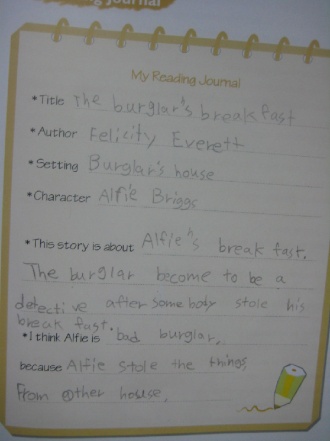 g Journal
My Reading Journal
*Title The burglar's breakfast
*Author Felicity Everett
*Setting Burglar's house
*Character Alfie Briggs
*This story is about Alfie's break fast.
The burglar become to be a
detective after some body stole his
break fast.
*I think Alfie is bad burglar,
because Alfie stole the things
from other house.